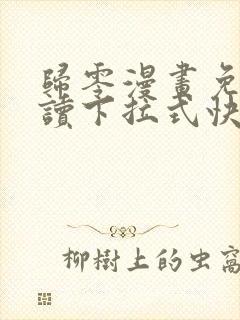 歸零漫畫免
讀下拉式快
柳樹上的虫窩